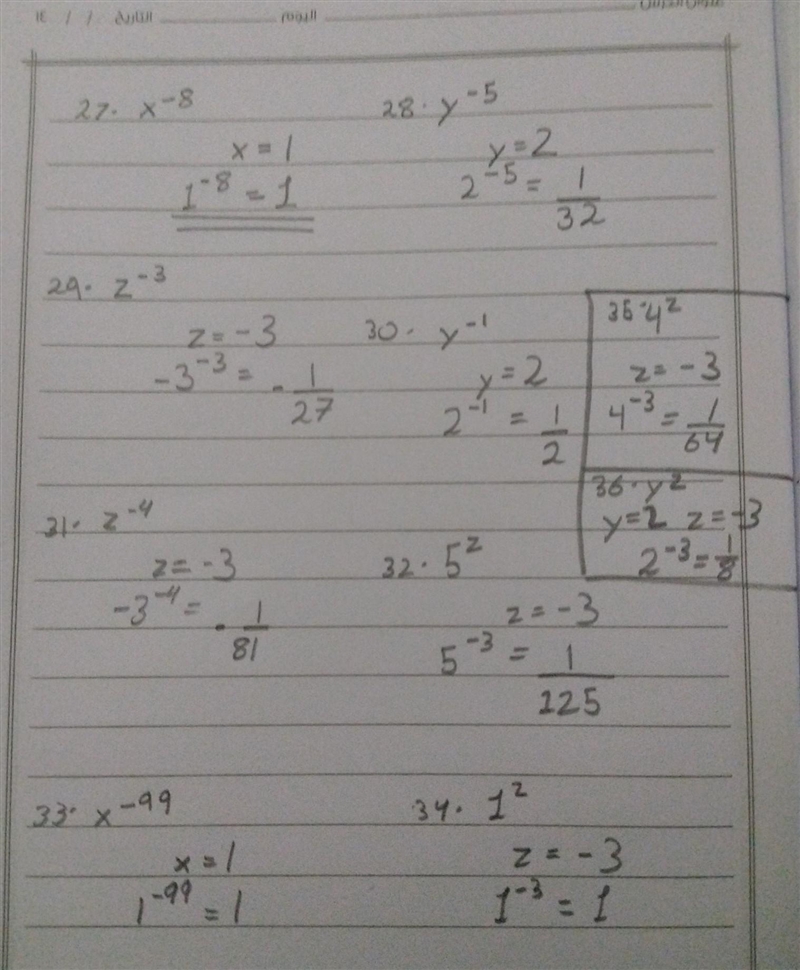 اليوم التاريخ / / ١٤
27. x^-8
x = 1
1^-8 = 1
28. y^-5
y = 2
2^-5 = 1/32
29. z^-3
z = -3
-3^-3 = -1/27
30. y^-1
y = 2
2^-1 = 1/2
35. 4^z
z = -3
4^-3 = 1/64
36. y^z
y = 2 z = -3
2^-3 = 1/8
31. z^-4
z = -3
-3^-4 = -1/81
32. 5^z
z = -3
5^-3 = 1/125
33. x^-99
x = 1
1^-99 = 1
34. 1^z
z = -3
1^-3 = 1